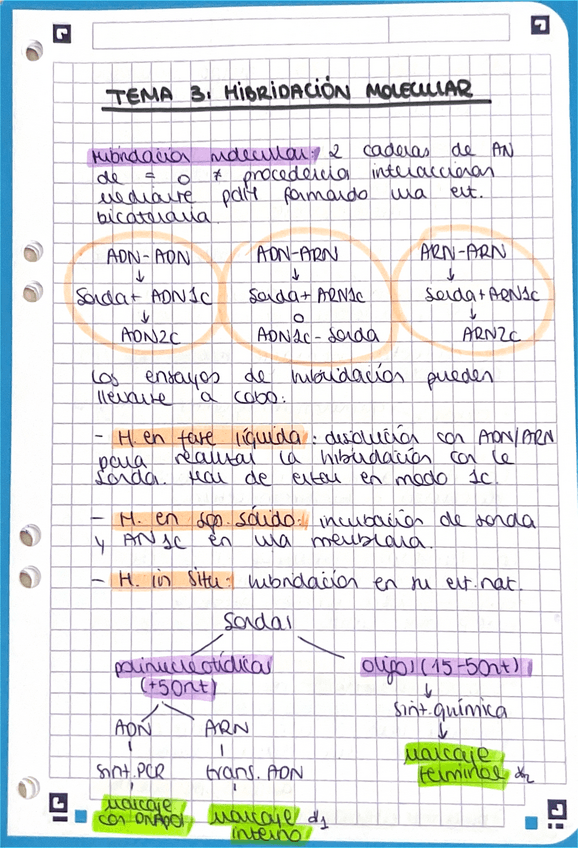 TEMA 3: HIBRIDACIÓN MOLECULAR
Hibridación molecular: 2 cadenas de AN
de = o ≠ procedencia interaccionan
mediante pdH formando una est.
bicatenaria.
ADN-ADN ADN-ARN ARN-ARN
↓ ↓ ↓
Sonda+ ADN1c Sonda+ARN1c Sonda+ARN1c
↓ o ↓
ADN2c ADN1c-Sonda ARN2c
Los ensayos de hibridación pueden
llevarse a cabo:
- H. en fase líquida: disolución con ADN/ARN
para realizar la hibridación con la
sonda. Han de estar en modo 1c.
- H. en sop. sólido: incubación de sonda
y AN1c en una membrana.
- H. in situ: hibridación en su est. nat.
Sondas
polinucleotídicas oligos (15-50nt)
(+50nt) ↓
sint. química
ADN ARN ↓
marcaje
sint. PCR trans. ADN terminal
marcaje marcaje d1
con interno